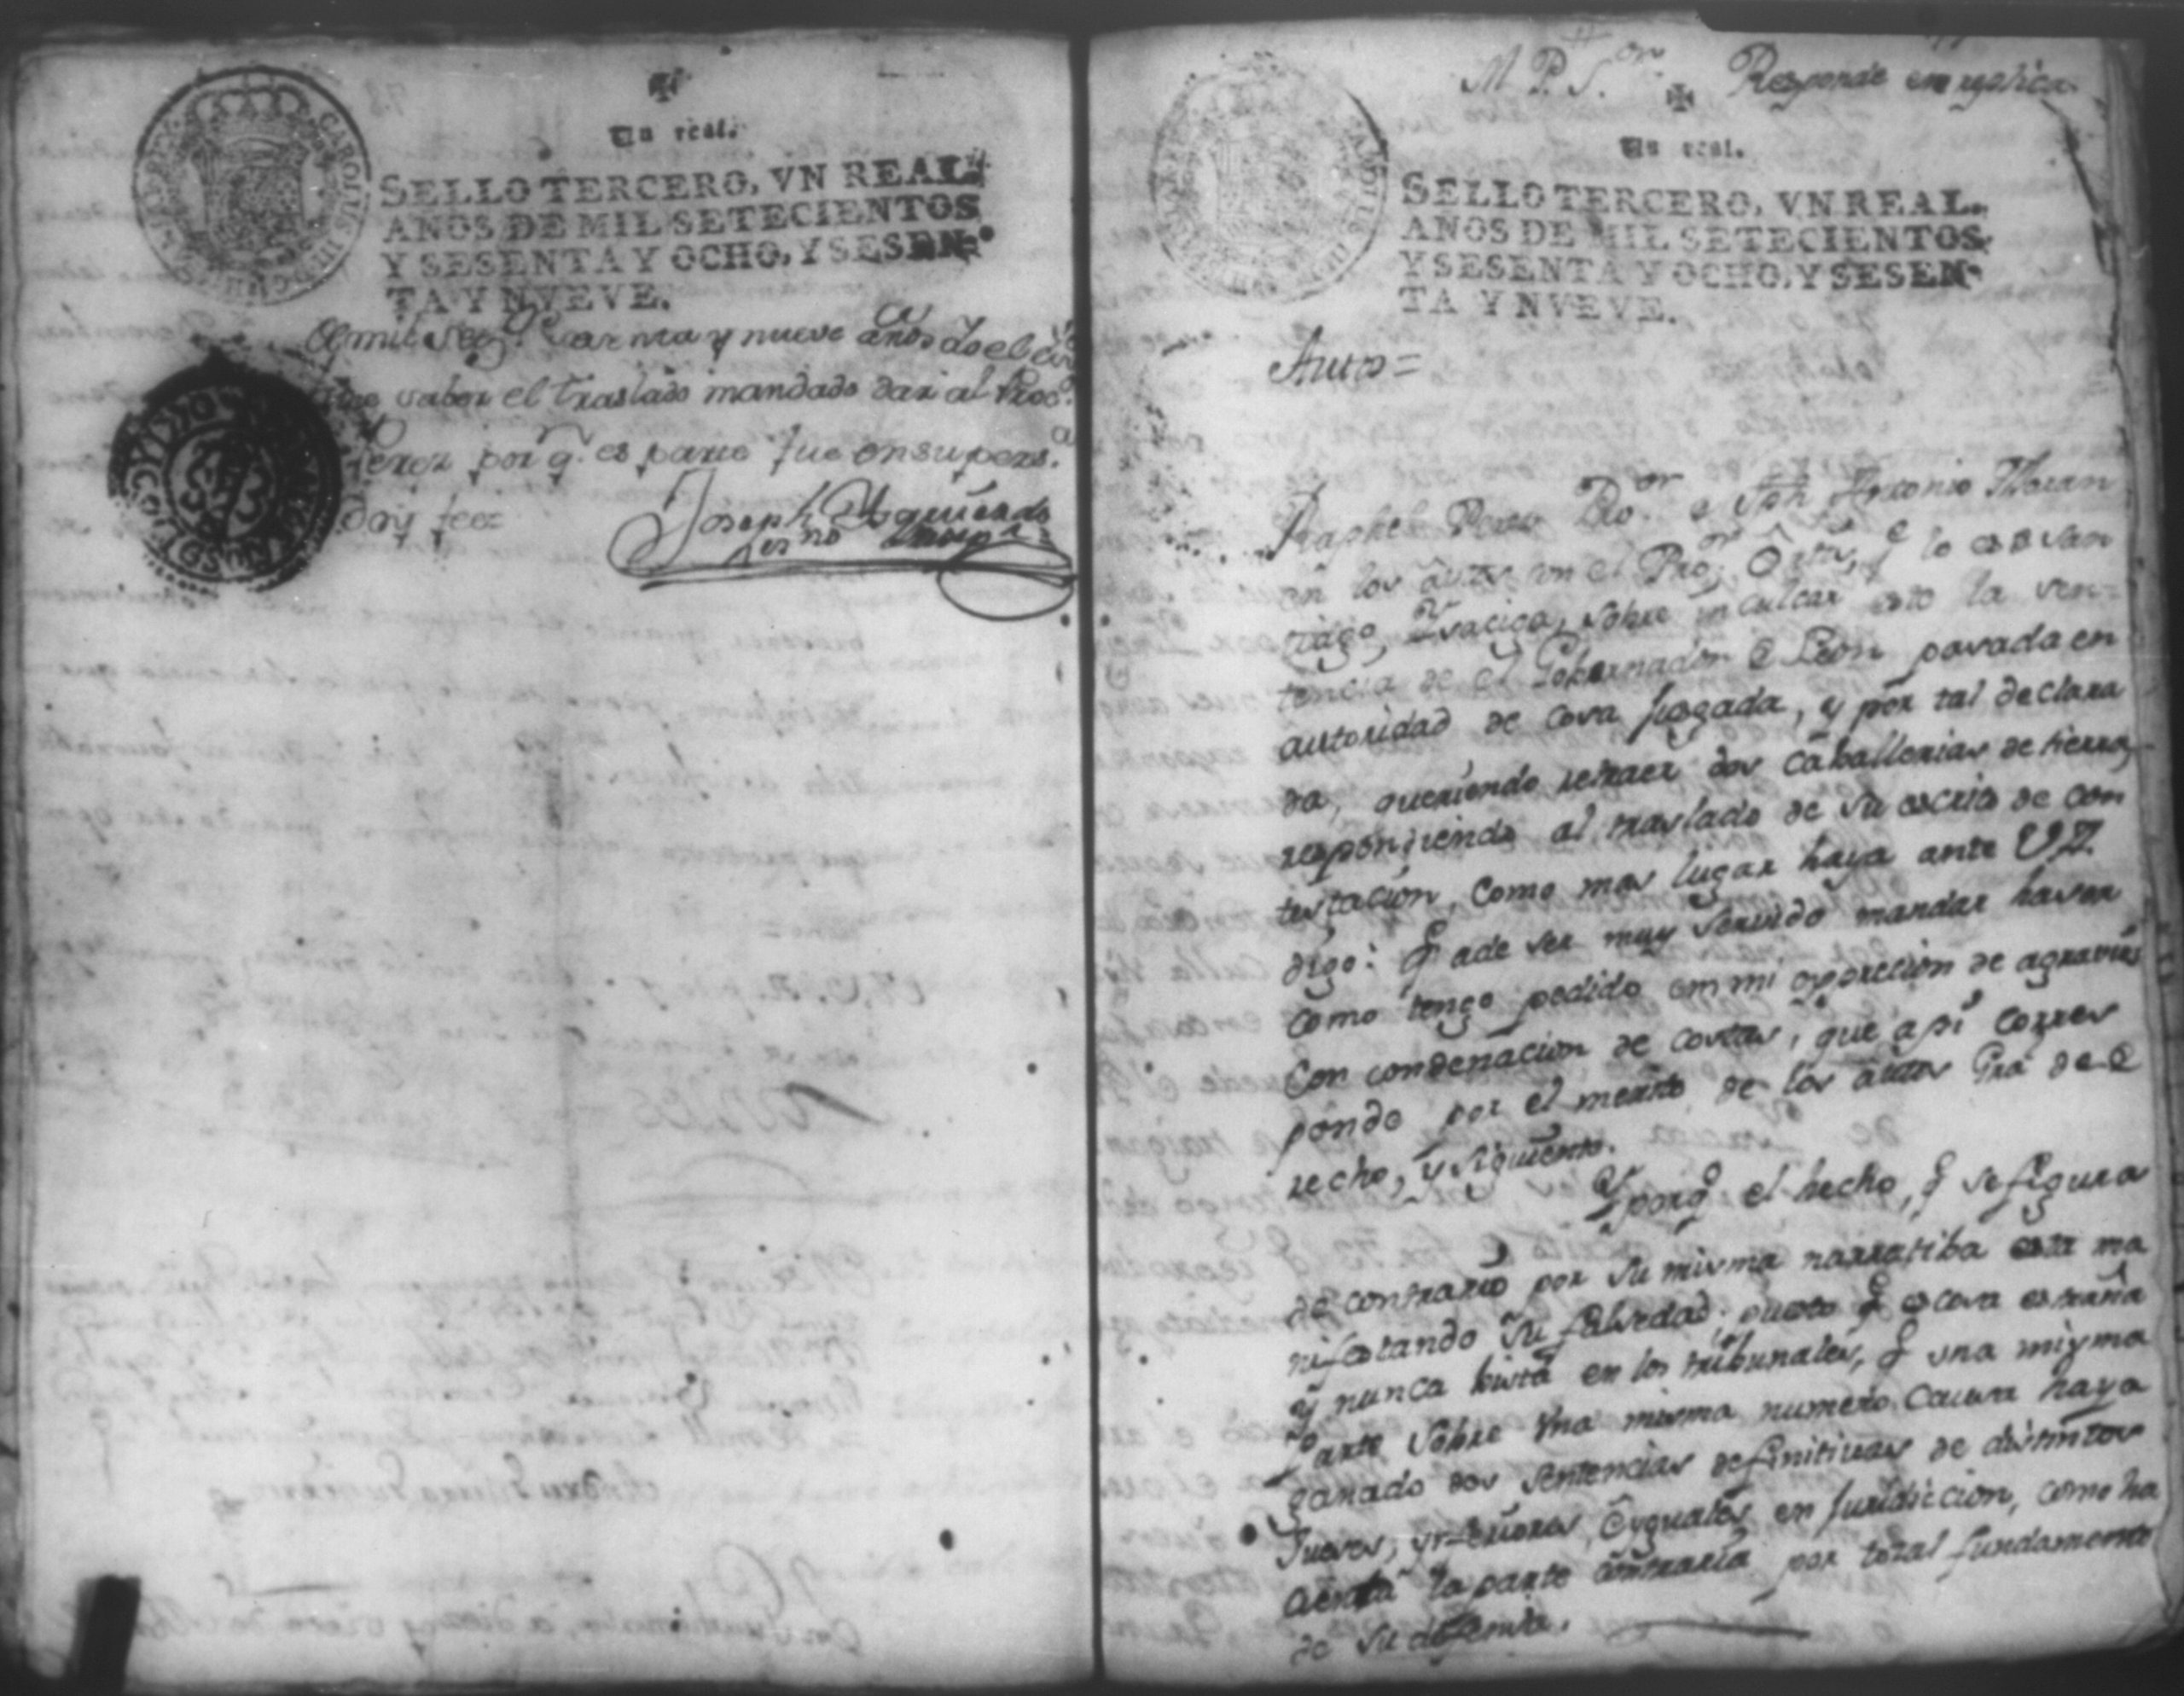 Un real.
SELLO TERCERO, VN REAL.
AÑOS DE MIL SETECIENTOS
Y SESENTA Y OCHO, Y SESEN-
TA Y NVEVE.
mil y nueve años Yo el
saber el traslado mandado dar al Proc.
Perez por q. es parte fue en su pers.a
doy fee
Joseph Ysquierdo
M P. S.or Responde en replica
Un real.
SELLO TERCERO, VN REAL.
AÑOS DE MIL SETECIENTOS
Y SESENTA Y OCHO, Y SESEN-
TA Y NVEVE.
Autos =
Raphel Perez Pro.or e Jph Antonio Moran
en los autos con el Pro.or q lo es e San
tiago sobre inculcar este la sen=
tencia de el Gobernador e Leon pasada en
autoridad de cosa jusgada, y por tal declara
da, queriendo retraer dos caballerias de tierra,
respondiendo al traslado de su escrito de con
testacion, como mas lugar haya ante VA.
digo: q ade ser muy servido mandar hacer
como tengo pedido en mi exprecion de agravios
con condenacion de costas, que a si corres
ponde por el merito de los autos Gra de e
recho, y siguiente.
Y porq el hecho, q se figura
de contrario por su misma narratiba esta ma
nifestando su falsedad; puesto q es cosa estraña
y nunca vista en los tribunales, q una misma
Parte sobre una misma numero causa haya
ganado dos sentencias definitivas de distintos
Jueses, ynferiores, e yguales en jurisdiccion, como ha
la parte contraria por total fundamento
de su defensa.